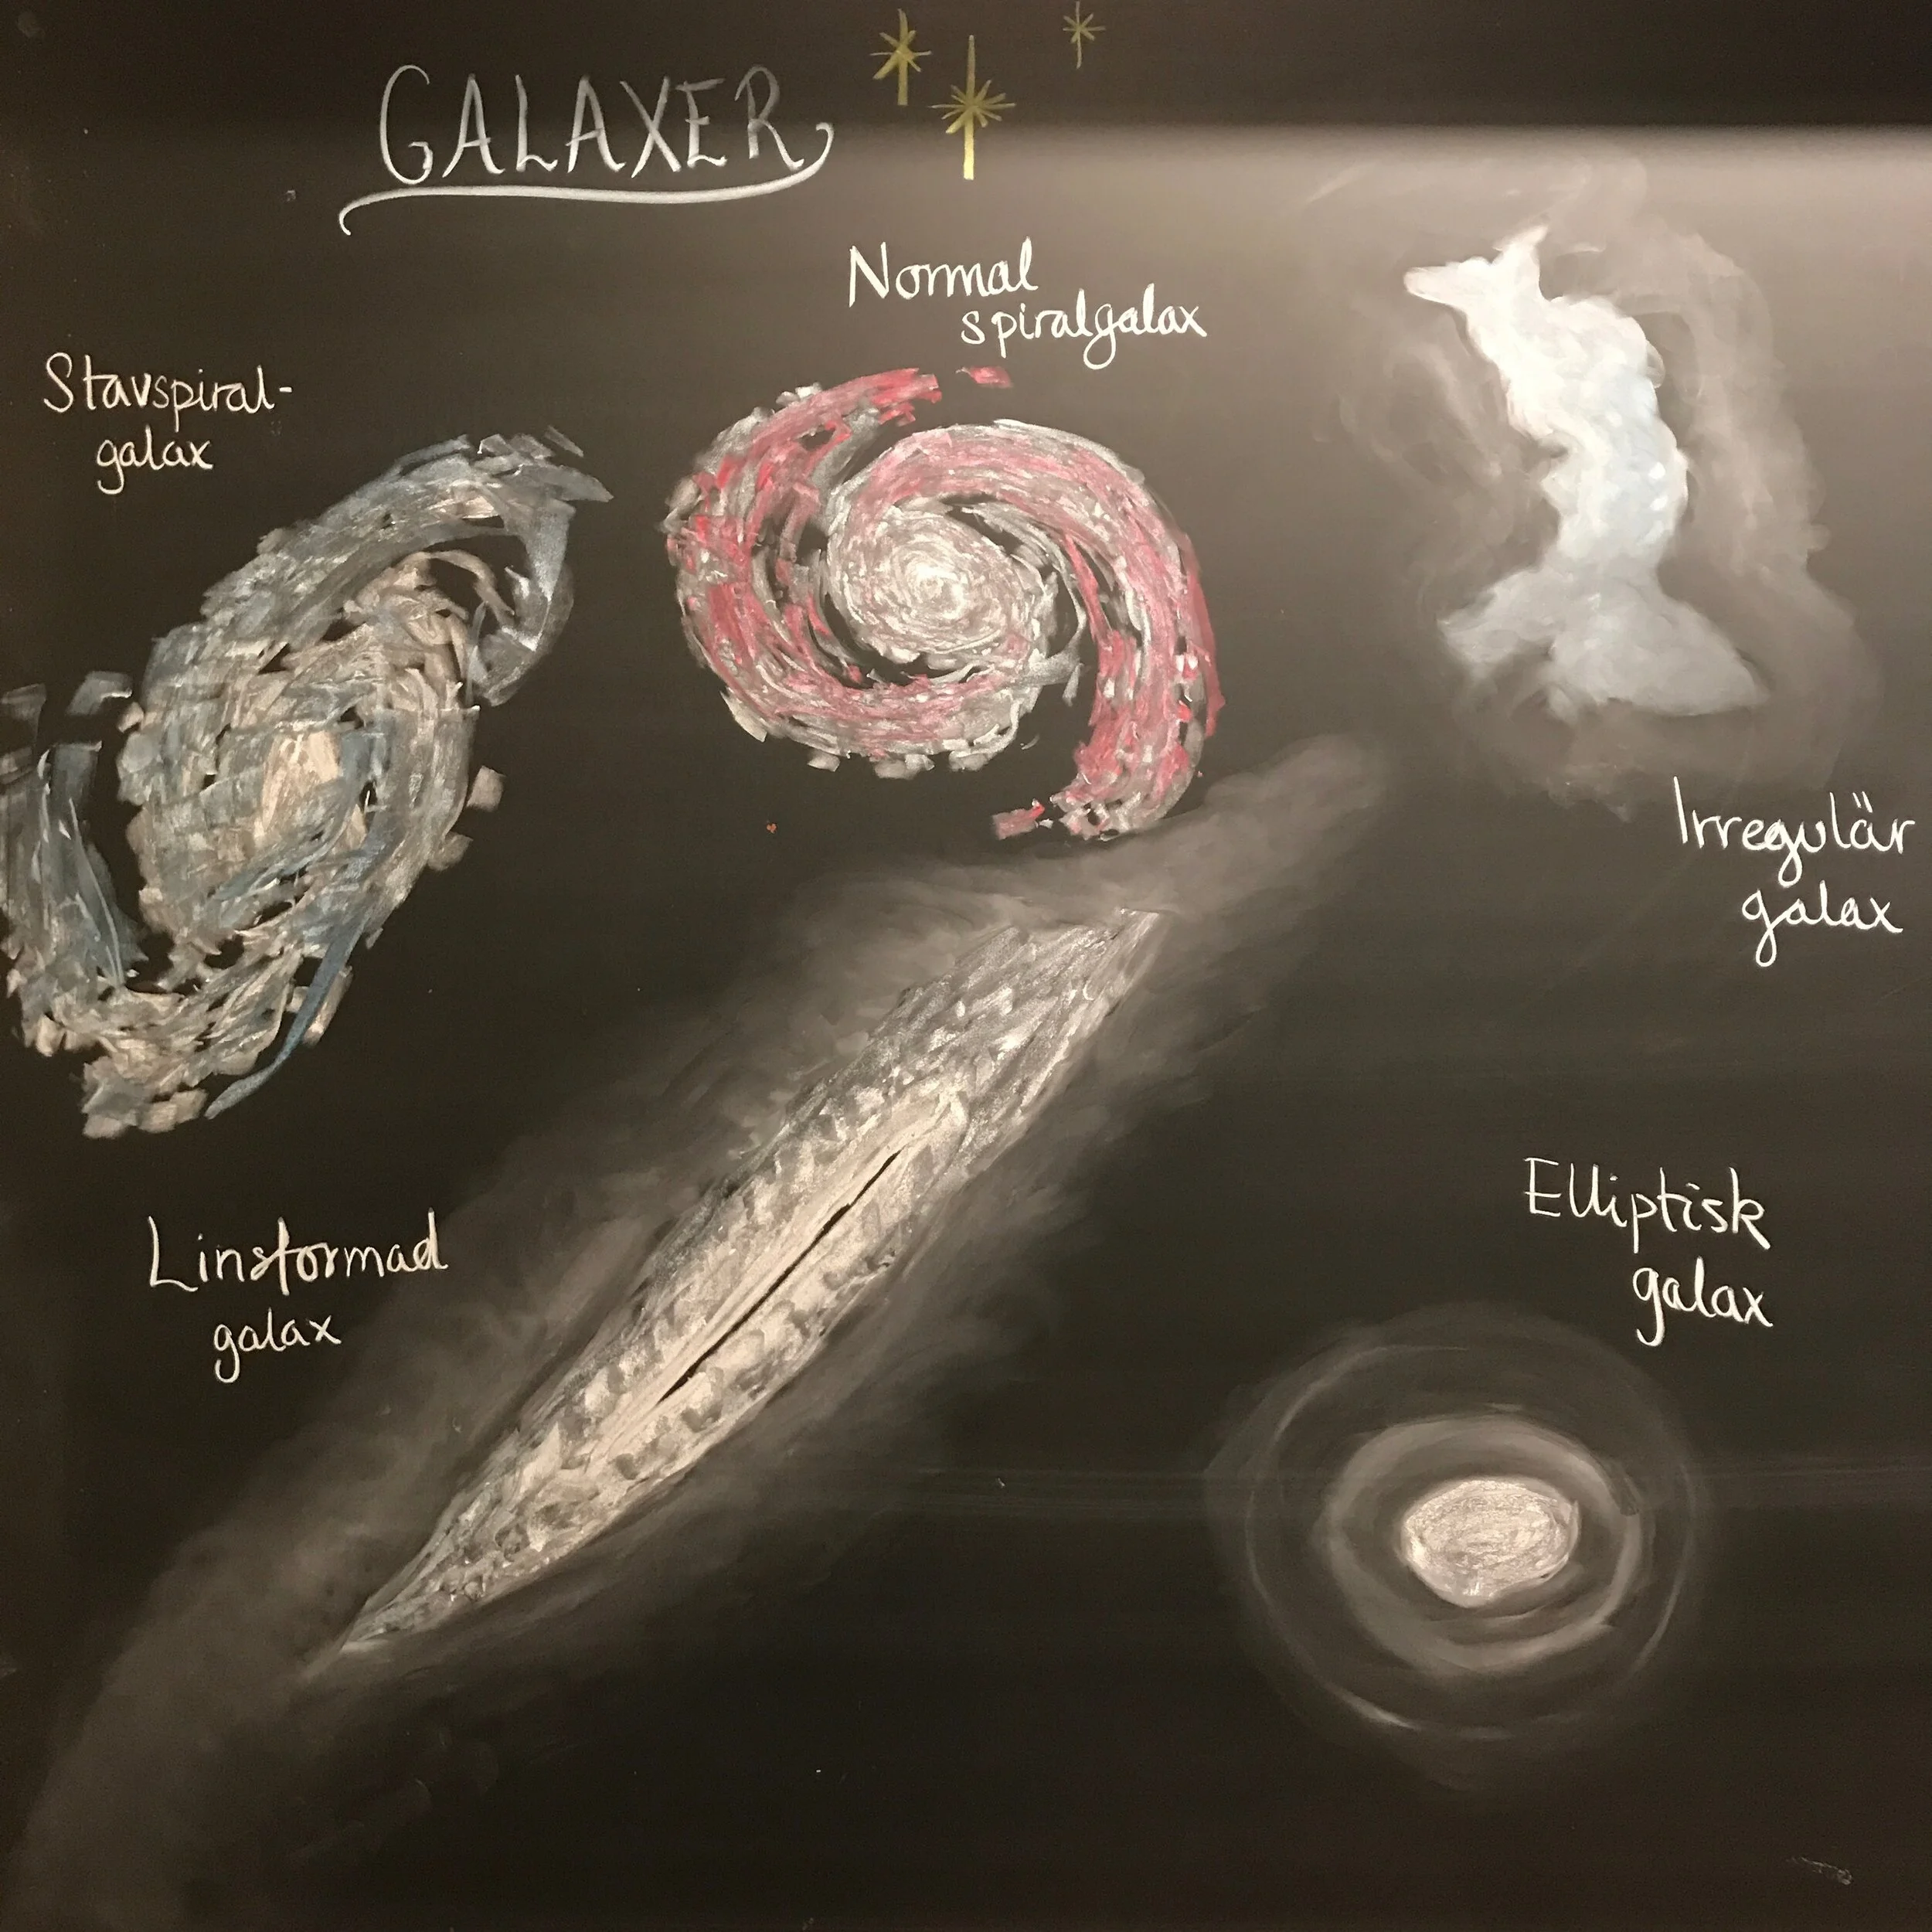 GALAXER
Normal
spiralgalax
Stavspiral-
galax
Irregulär
galax
Linsformad
galax
Elliptisk
galax